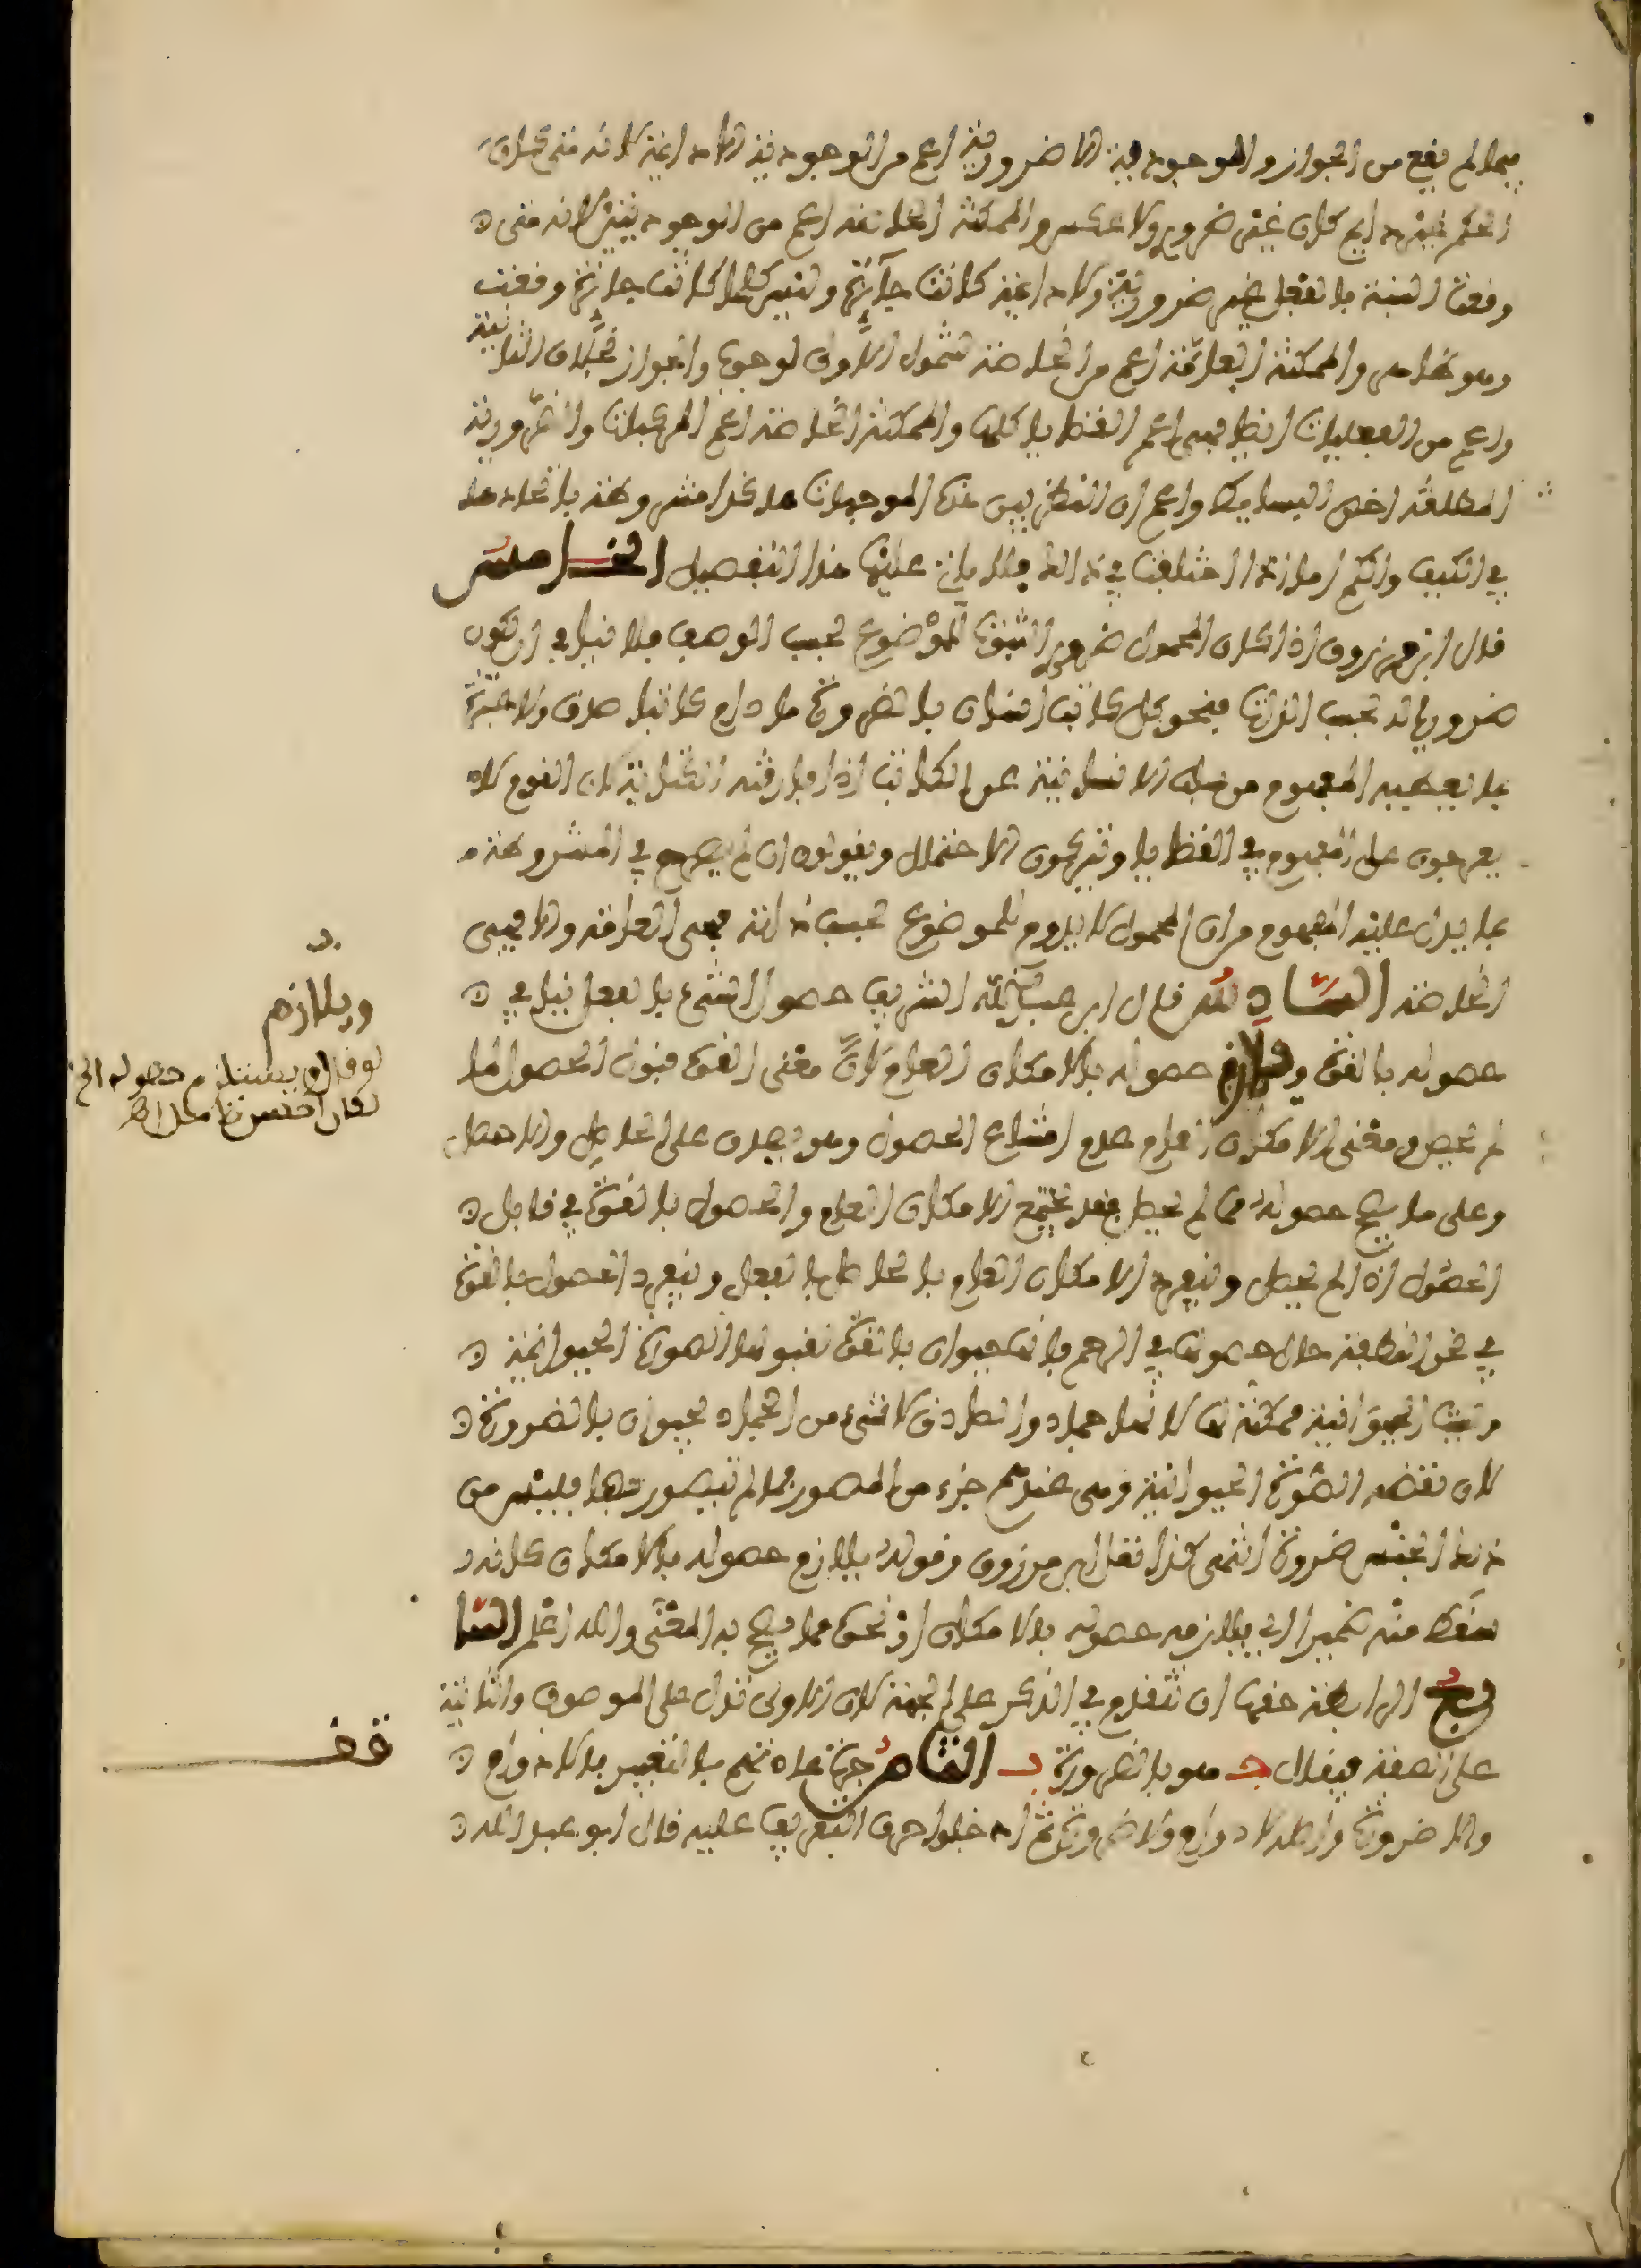 فيما لم يقع من الجواز والوجودية اللا ضرورية اعم من الوجودية اللا دائمة لانه متى كان
الحكم غير دائم كان غير ضروري ولا عكس والممكنة الخاصة اعم من الوجوديتين لانه متى
وقعت النسبة بالفعل غير ضرورية ولا دائمة كانت جائزة وليس كلما كانت جائزة وقعت
وهو ظاهر والممكنة العامة اعم من الخاصة لشمول الاولى الوجوب والجواز بخلاف الثانية
واعم من الفعليات ايضا فهي اعم القضايا كلها والممكنة الخاصة اعم المركبات والضرورية
المطلقة اخص البسايط واعلم ان التناقض بين هذه الموجهات مشروطة باتحادها
في الكيف والكم اما اذا اختلفت في ذلك فلا يأتي عليها هذا التفصيل الخامس
قال ابن مرزوق اذا كان المحمول ضروري الثبوت للموضوع بحسب الوصف فلا ينافي ان يكون
ضروريا له بحسب الذات فنحو كل كاتب انسان بالضرورة ما دام كاتبا صادق ولا عبرة
بما يعطيه المفهوم من سلب الانسانية عن الكاتب اذا فارقته الكتابة لان القوم لا
يعرجون على المفهوم في القضايا ويتركون الاحتمال ويقولون ان لم يصرح في المشروطة
بما يدل عليه المفهوم من ان المحمول لا يدوم للموضوع بحسب ذاته فهي العامة والا فهي
الخاصة السادس قال ابو عبد الله الشريف حصول الشيء بالفعل ينافي
حصوله بالقوة ويلازم حصوله بالامكان العام لان معنى القوة قبول الحصول لما
لم يحصل ومعنى الامكان العام عدم امتناع الحصول وهو يصدق على الحاصل والا حصل
وعلى ما يصح حصوله مما لم يحصل فقد يجتمع الامكان العام والحصول بالقوة في قابل
الحصول اذا لم يحصل وينفرد الامكان العام بالحاصل بالفعل وينفرد الحصول بالقوة
في نحو النطفة حال حصولها في الرحم فانها حيوان بالقوة لقبولها الصورة الحيوانية
وليست الحيوانية ممكنة لها لانها جماد والصادق لا شيء من الجماد بحيوان بالضرورة
لان نقيضه الصورة الحيوانية وهي عندهم جزء من المصور فما لم يتصور بها فليس من
ذلك الجنس ضرورة انتهى كذا نقل ابن مرزوق وقوله يلازم حصوله بالامكان كانه
سقط منه ضمير اي يلازمه حصوله بالامكان او نحوه مما يصح به المعنى والله اعلم السا
بع الرابطة حقها ان تتقدم في الذكر على الجهة لان الاولى تدل على الموصوف والثانية
على الصفة فيقال ج هو بالضرورة ب الثامن جرت عادتهم بالتعبير بالادوام
واللا ضرورة واصله لا دوام ولا ضرورة ثم ادخلوا حرف التعريف عليه قال ابو عبد الله
ويلازم
لو قال ويستلزم حصوله الخ
لكان احسن تامل اهـ
قف